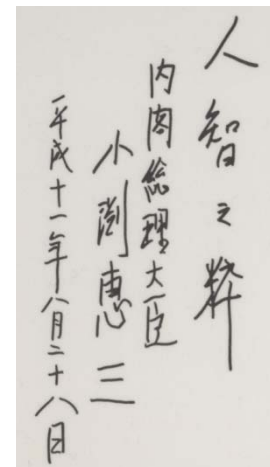 人智之粹
内閣総理大臣
小渕恵三
平成十一年八月二十八日